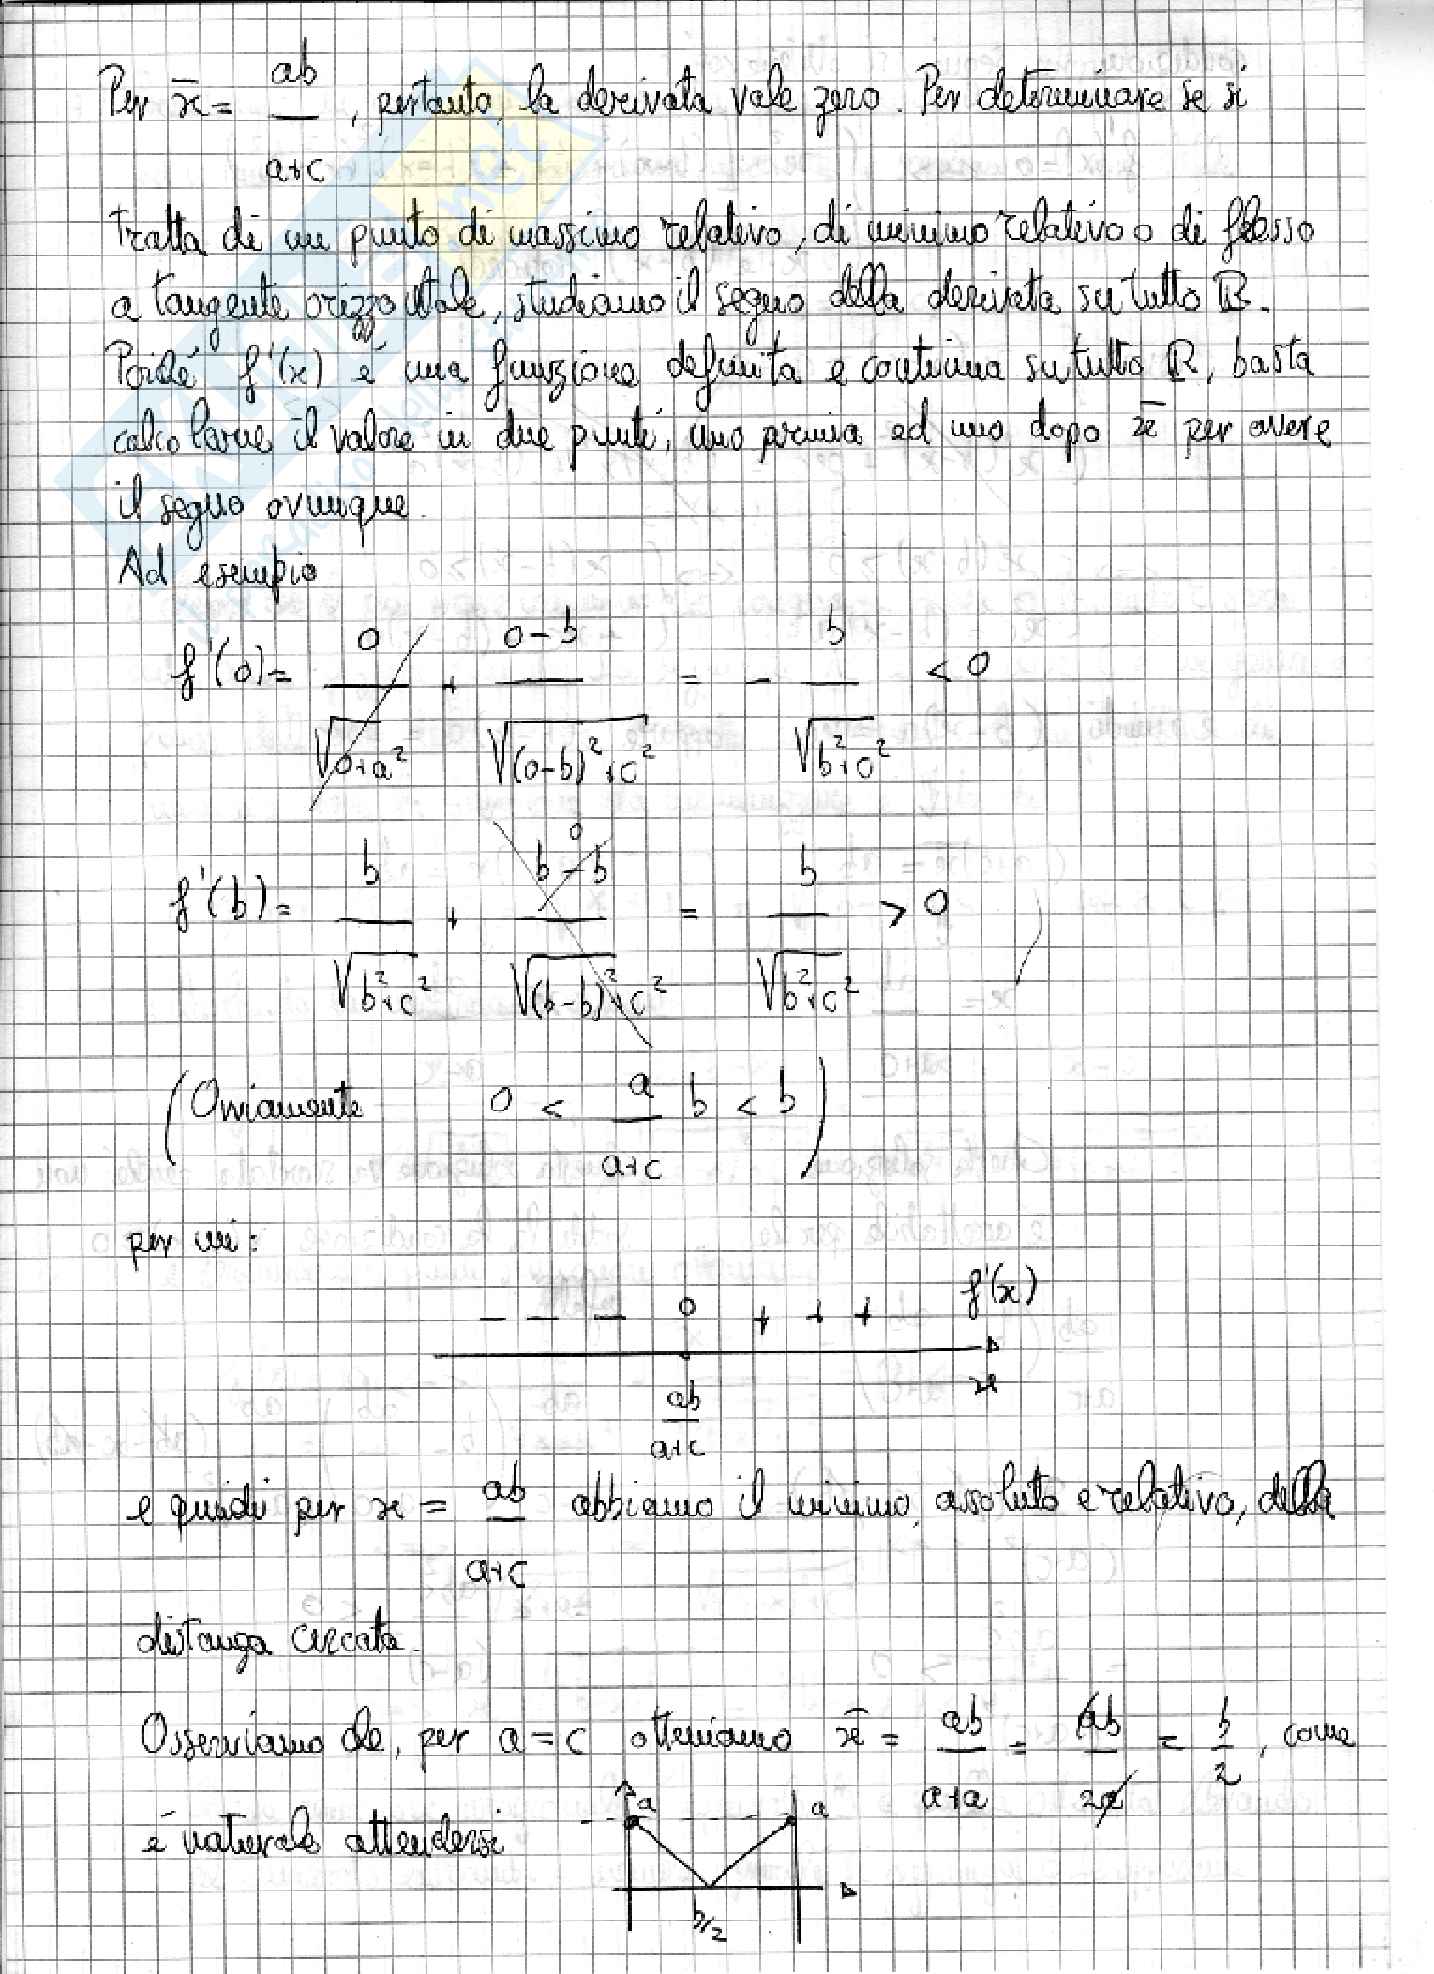 Per x̄ = ab/(a+c), pertanto, la derivata vale zero. Per determinare se si
tratta di un punto di massimo relativo, di minimo relativo o di flesso
a tangente orizzontale, studiamo il segno della derivata su tutto ℝ.
Poiché f'(x) è una funzione definita e continua su tutto ℝ, basta
calcolarne il valore in due punti, uno prima ed uno dopo x̄ per avere
il segno ovunque.
Ad esempio
f'(0) = 0/√(0+a²) + (0-b)/√((0-b)²+c²) = - b/√(b²+c²) < 0
f'(b) = b/√(b²+c²) + (b-b)/√((b-b)²+c²) = b/√(b²+c²) > 0
0
(Ovviamente 0 < a/(a+c) b < b)
per cui:
- - - 0 + + + f'(x)
x
ab/(a+c)
e quindi per x = ab/(a+c) abbiamo il minimo, assoluto e relativo, della
distanza cercata.
Osserviamo che, per a = c otteniamo x̄ = ab/(a+a) = ab/2a = b/2, come
è naturale attendersi
a a
b/2